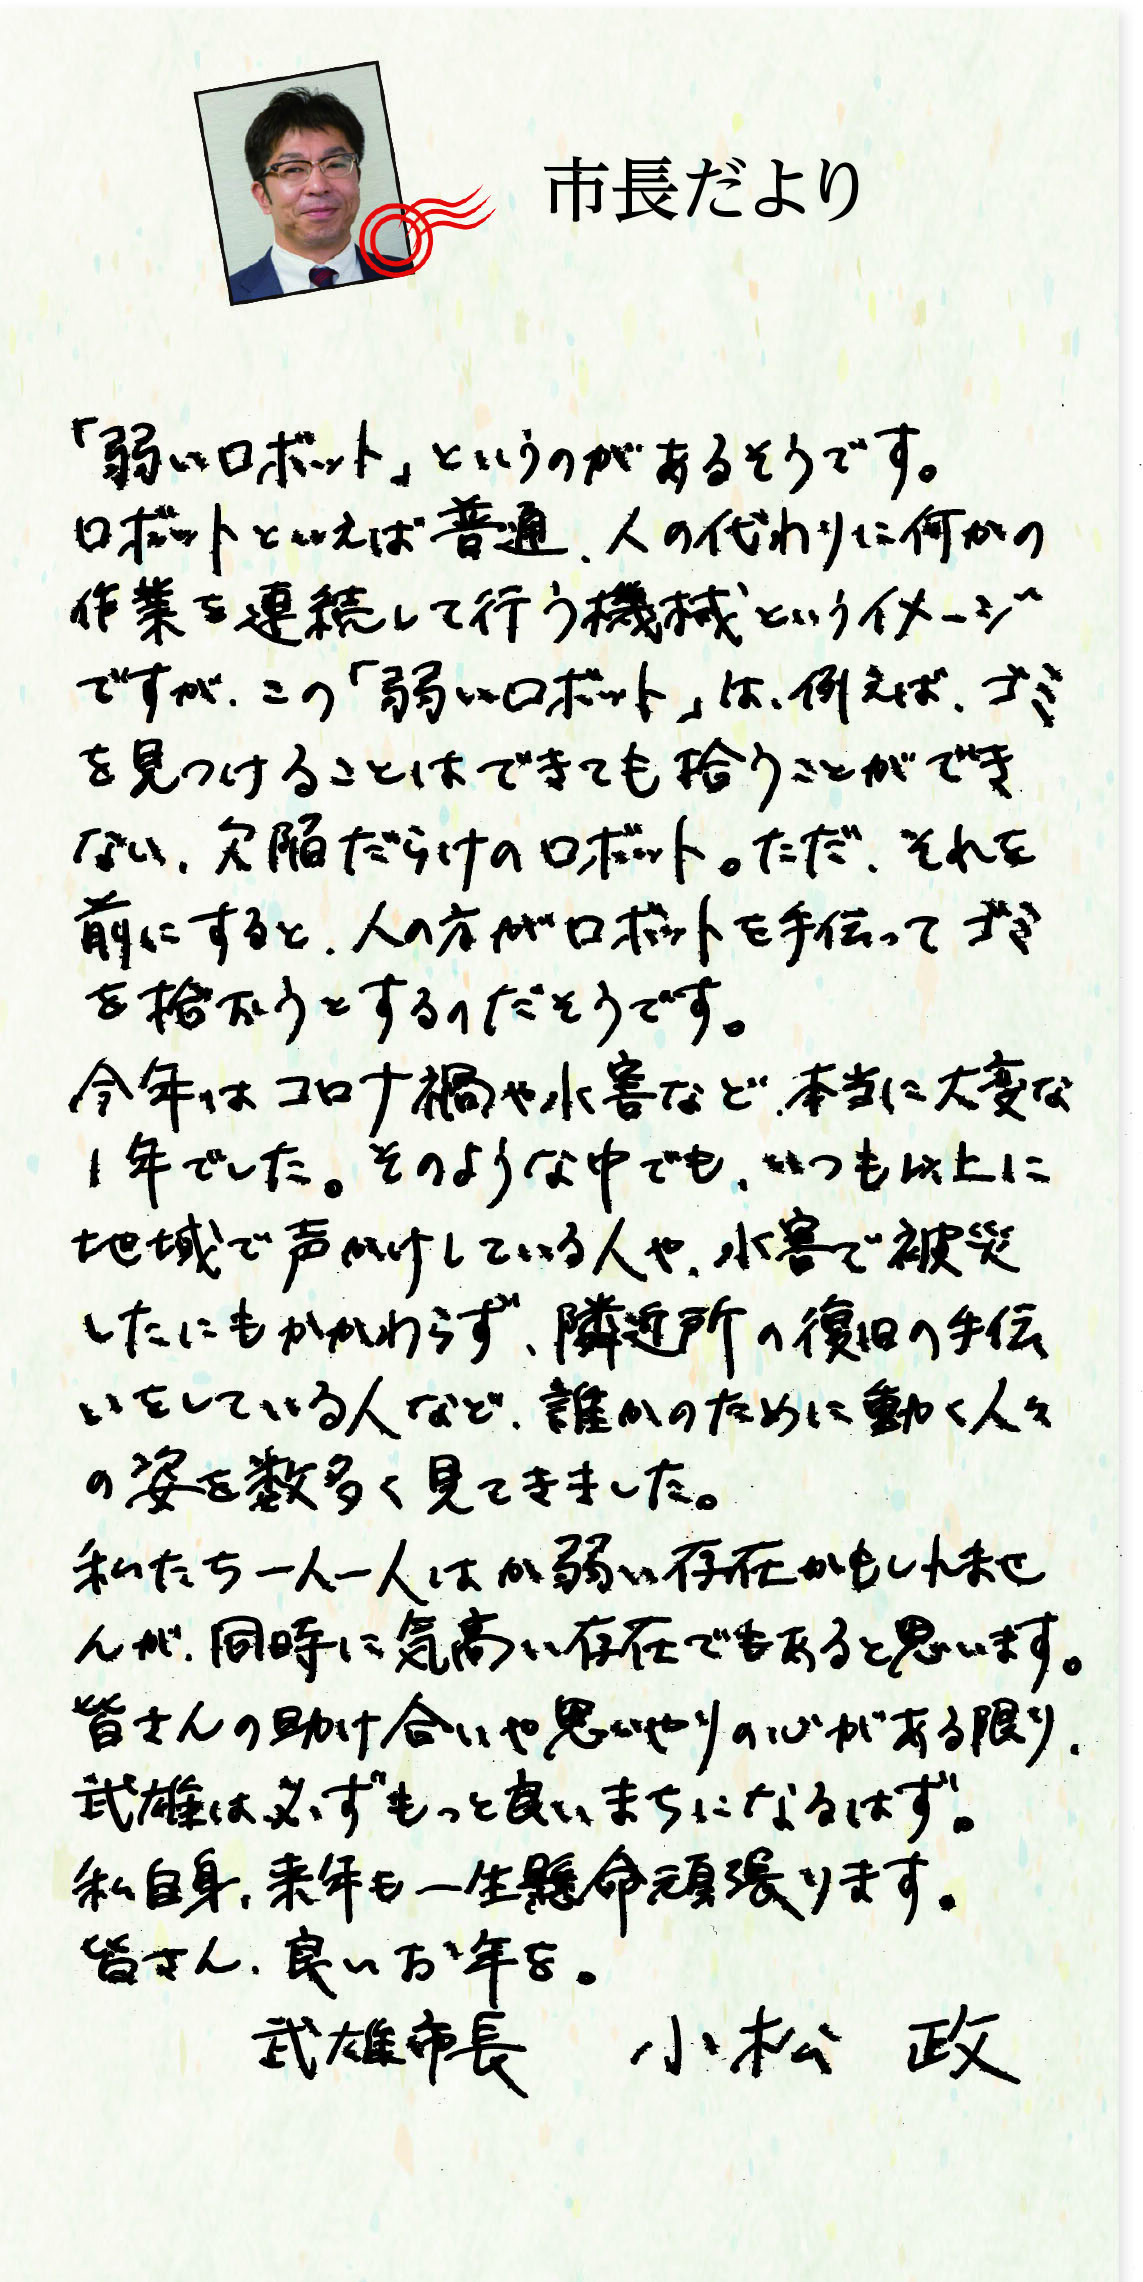 市長だより
「弱いロボット」というのがあるそうです。
ロボットといえば普通、人の代わりに何かの
作業を連続して行う機械というイメージ
ですが、この「弱いロボット」は、例えば、ゴミ
を見つけることはできても拾うことができ
ない、欠陥だらけのロボット。ただ、それを
前にすると、人の方がロボットを手伝ってゴミ
を拾おうとするのだそうです。
今年はコロナ禍や水害など、本当に大変な
1年でした。そのような中でも、いつも以上に
地域で声かけしている人や、水害で被災
したにもかかわらず、隣近所の復旧の手伝
いをしている人など、誰かのために動く人々
の姿を数多く見てきました。
私たち一人一人はか弱い存在かもしれませ
んが、同時に気高い存在でもあると思います。
皆さんの助け合いや思いやりの心がある限り、
武雄は必ずもっと良いまちになるはず。
私自身、来年も一生懸命頑張ります。
皆さん、良いお年を。
武雄市長 小松 政